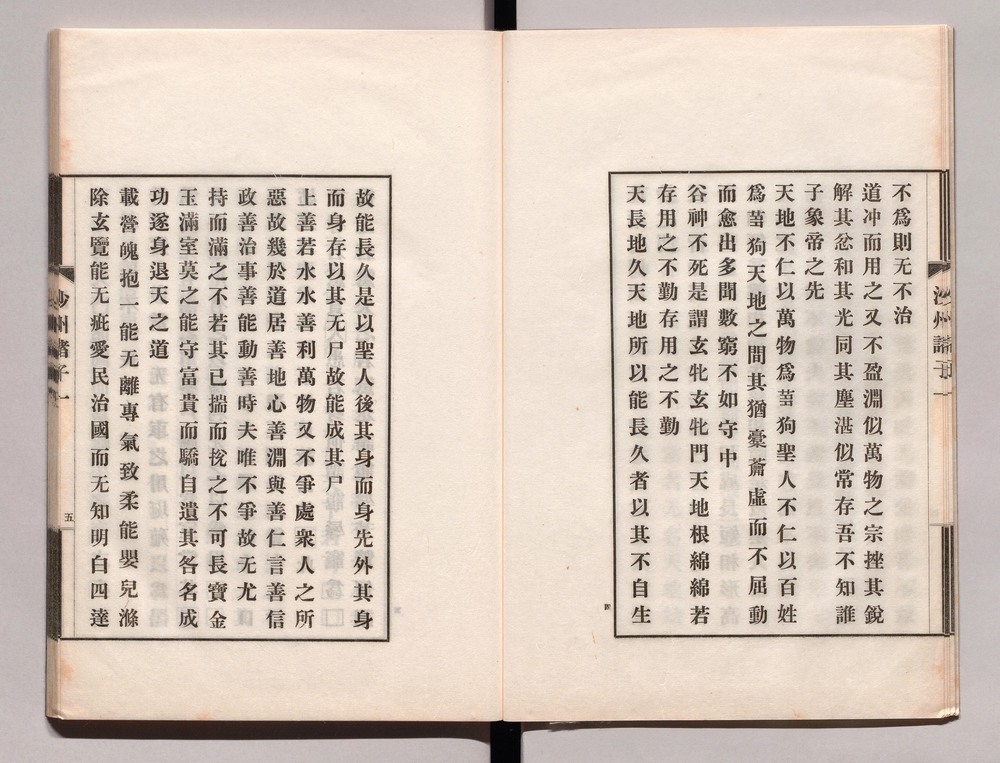 不爲則无不治
道冲而用之又不盈淵似萬物之宗挫其銳
解其忿和其光同其塵湛似常存吾不知誰
子象帝之先
天地不仁以萬物爲芻狗聖人不仁以百姓
爲芻狗天地之間其猶橐籥虛而不屈動
而愈出多聞數窮不如守中
谷神不死是謂玄牝玄牝門天地根綿綿若
存用之不勤存用之不勤
天長地久天地所以能長久者以其不自生
四
故能長久是以聖人後其身而身先外其身
而身存以其无尸故能成其尸
上善若水水善利萬物又不爭處衆人之所
惡故幾於道居善地心善淵與善仁言善信
政善治事善能動善時夫唯不爭故无尤
持而滿之不若其已揣而捝之不可長寶金
玉滿室莫之能守富貴而驕自遺其咎名成
功遂身退天之道
載營魄抱一能无離專氣致柔能嬰兒滌
除玄覽能无疵愛民治國而无知明白四達
五